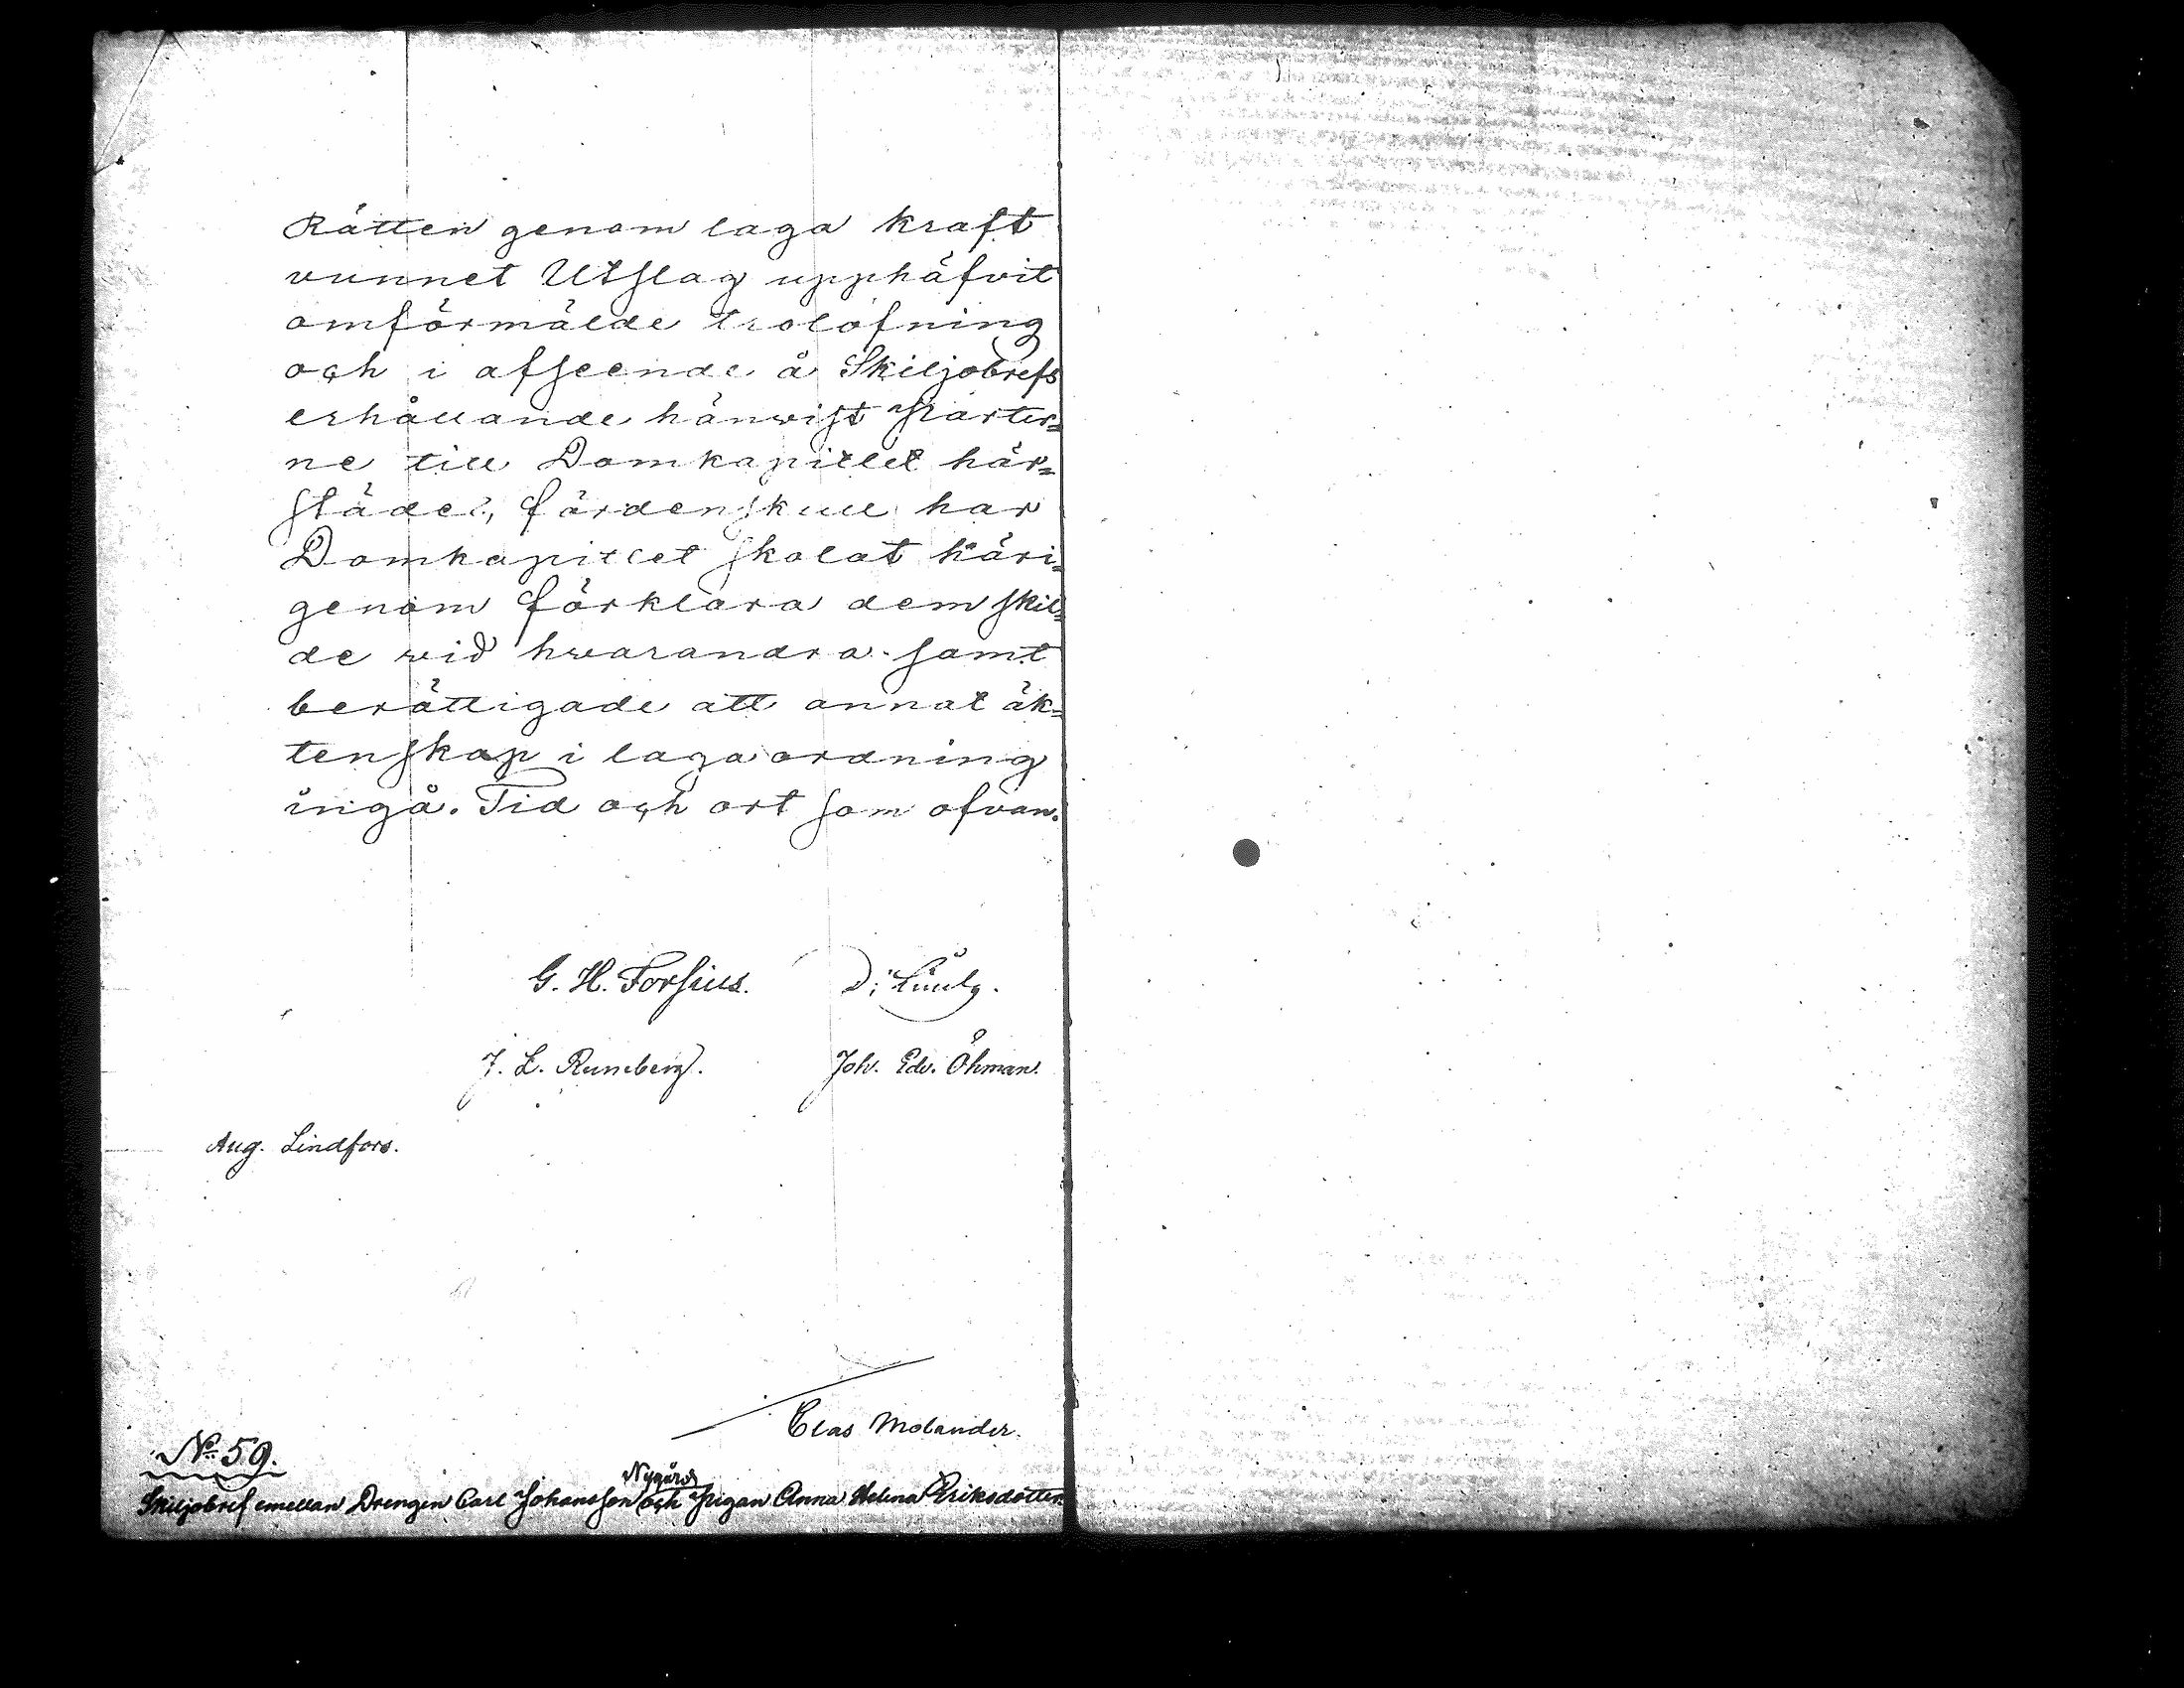 Rätten genom laga kraft
vunnet Utslag upphäfvit
omförmälde trolofning
och i afseende å Skiljobrefs
erhållande hänvist Parter=
ne till Domkapitlet här=
städes, fördenskull har
Domkapitlet skolat häri=
genom förklara dem skil=
de vid hvarandra samt
berättigade att annat äk=
tenskap i laga ordning
ingå. Tid och ort som ofvan.
G. H. Forsius.
J. L. Runeberg. Joh. Edv. Öhman.
Aug. Lindfors.
Clas Molander.
No 59.
Nygård
Skiljobref emellan Drengen Carl Johansson och Pigan Anna Helena Eriksdotter.